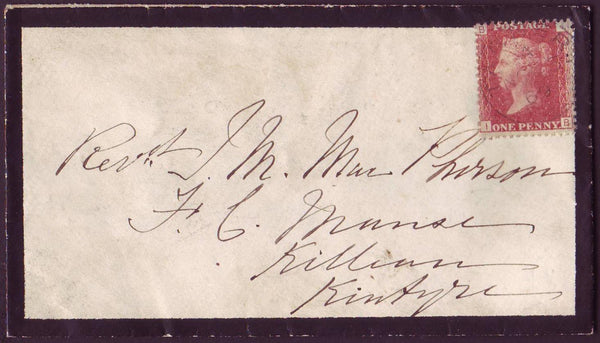 POSTAGE
ONE PENNY
I B
Revd J. M. Mac Pherson
F. C. Manse
Killean
Kintyre